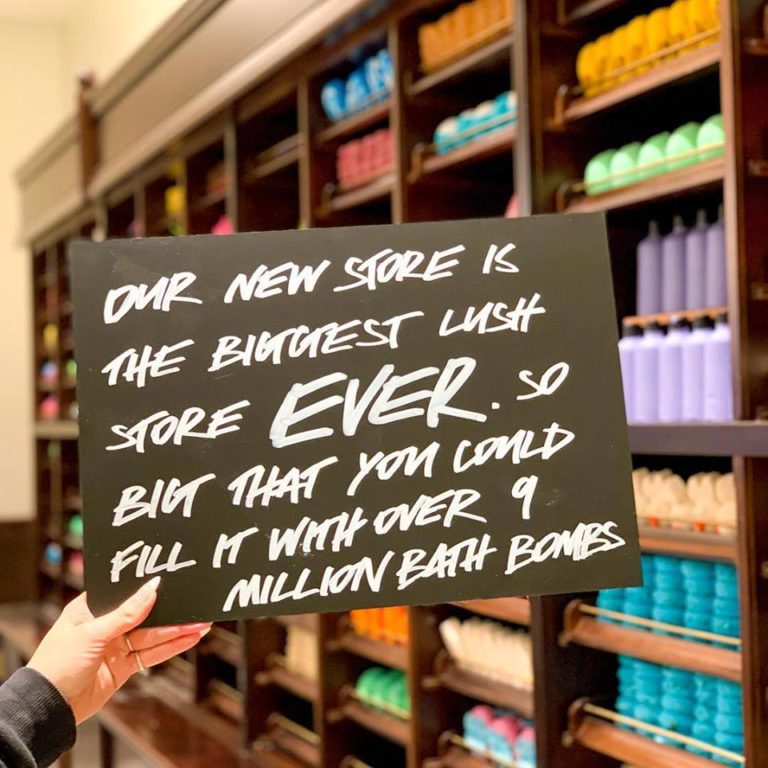 OUR NEW STORE IS
THE BIGGEST LUSH
STORE EVER. SO
BIG THAT YOU COULD
FILL IT WITH OVER 9
MILLION BATH BOMBS